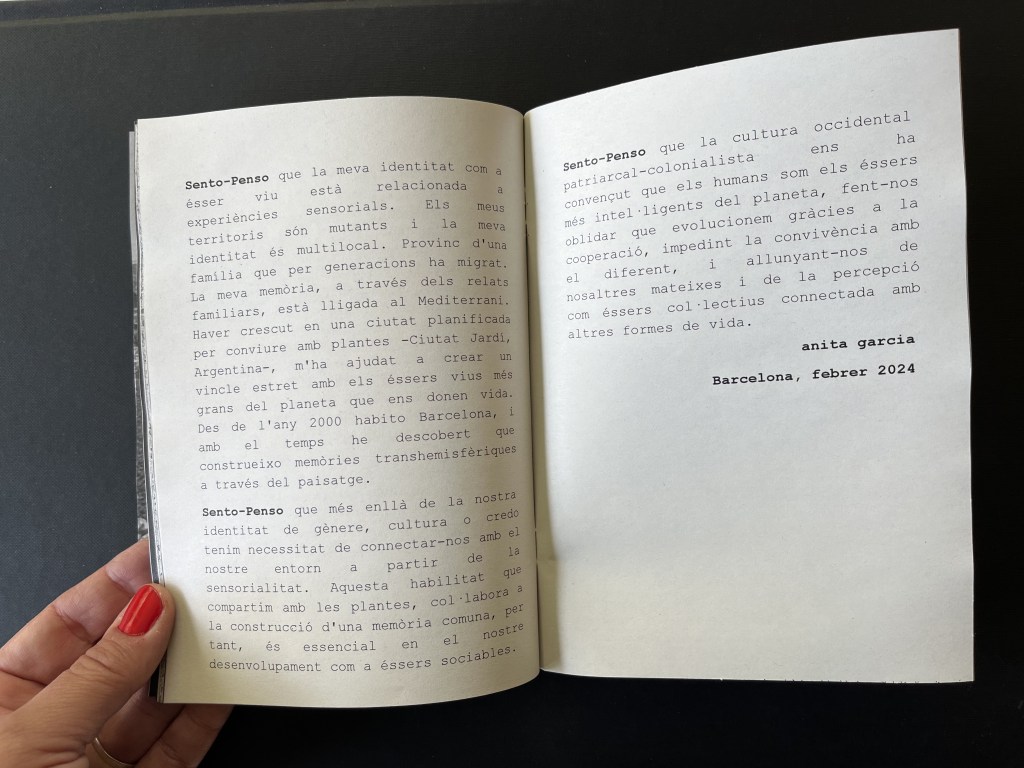 Sento-Penso que la meva identitat com a
ésser viu està relacionada a
experiències sensorials. Els meus
territoris són mutants i la meva
identitat és multilocal. Provinc d'una
família que per generacions ha migrat.
La meva memòria, a través dels relats
familiars, està lligada al Mediterrani.
Haver crescut en una ciutat planificada
per conviure amb plantes -Ciutat Jardí,
Argentina-, m'ha ajudat a crear un
vincle estret amb els éssers vius més
grans del planeta que ens donen vida.
Des de l'any 2000 habito Barcelona, i
amb el temps he descobert que
construeixo memòries transhemisfèriques
a través del paisatge.
Sento-Penso que més enllà de la nostra
identitat de gènere, cultura o credo
tenim necessitat de connectar-nos amb el
nostre entorn a partir de la
sensorialitat. Aquesta habilitat que
compartim amb les plantes, col·labora a
la construcció d'una memòria comuna, per
tant, és essencial en el nostre
desenvolupament com a éssers sociables.
Sento-Penso que la cultura occidental
patriarcal-colonialista ens ha
convençut que els humans som els éssers
més intel·ligents del planeta, fent-nos
oblidar que evolucionem gràcies a la
cooperació, impedint la convivència amb
el diferent, i allunyant-nos de
nosaltres mateixes i de la percepció
com éssers col·lectius connectada amb
altres formes de vida.
anita garcia
Barcelona, febrer 2024